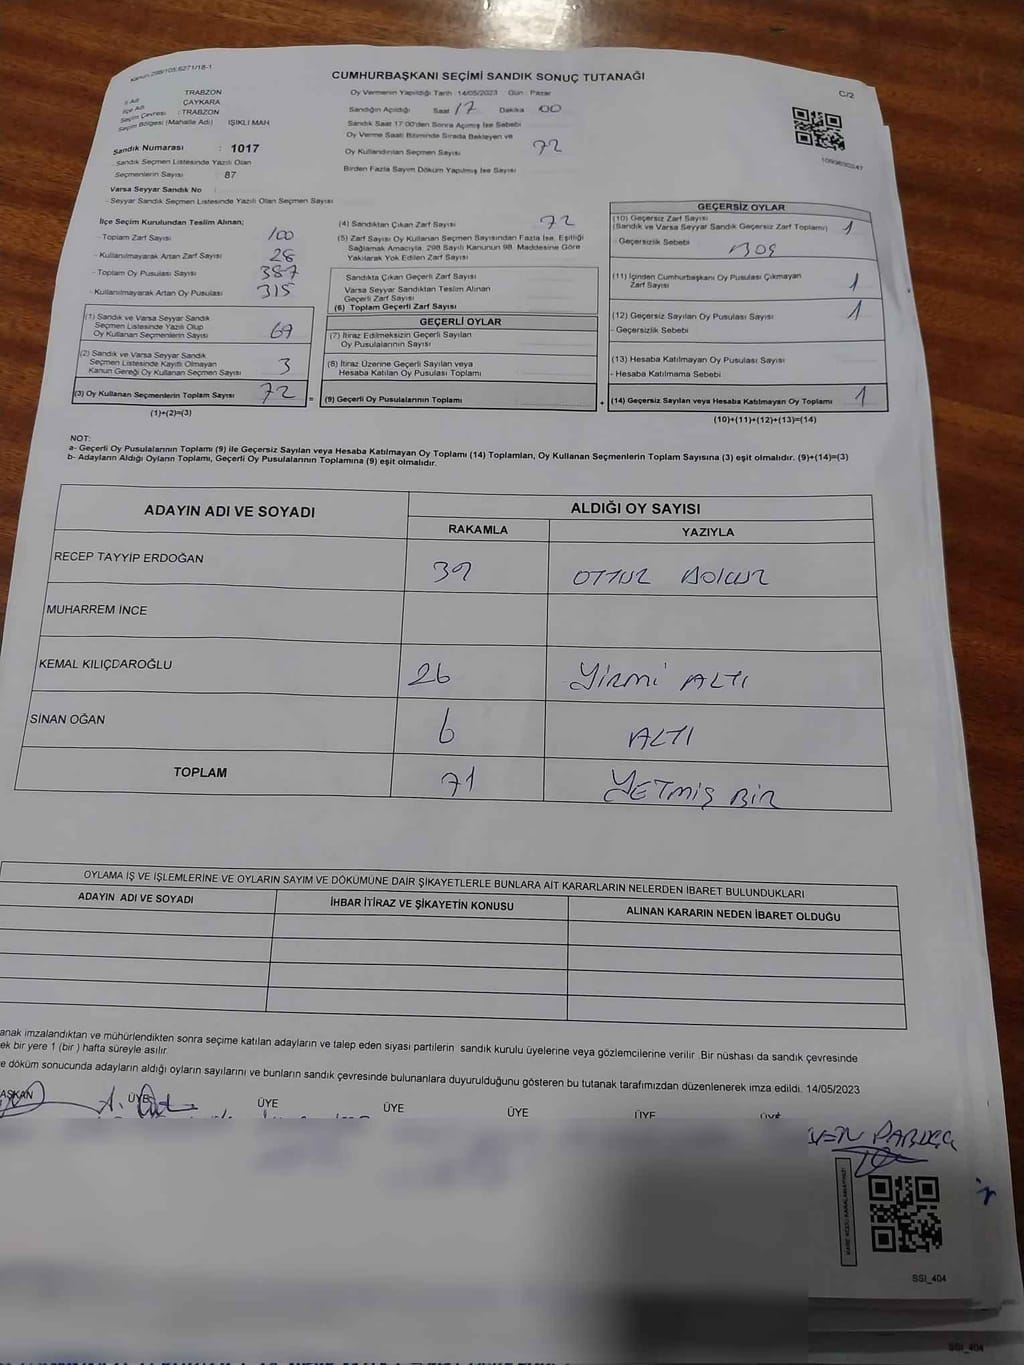 Kanun:298/105;6271/18-1
CUMHURBAŞKANI SEÇİMİ SANDIK SONUÇ TUTANAĞI
C/2
İl Adı TRABZON
İlçe Adı ÇAYKARA
Seçim Çevresi : TRABZON
Seçim Bölgesi (Mahalle Adı) IŞIKLI MAH.
Sandık Numarası : 1017
Sandık Seçmen Listesinde Yazılı Olan
Seçmenlerin Sayısı 87
Varsa Seyyar Sandık No
- Seyyar Sandık Seçmen Listesinde Yazılı Olan Seçmen Sayısı
Oy Vermenin Yapıldığı Tarih : 14/05/2023 Gün : Pazar
Sandığın Açıldığı Saat 17 Dakika 00
Sandık Saat 17:00'den Sonra Açılmış İse Sebebi
Oy Verme Saati Bitiminde Sırada Bekleyen ve
Oy Kullandırılan Seçmen Sayısı 72
Birden Fazla Sayım Döküm Yapılmış İse Sayısı
İlçe Seçim Kurulundan Teslim Alınan;
- Toplam Zarf Sayısı 100
- Kullanılmayarak Artan Zarf Sayısı 28
- Toplam Oy Pusulası Sayısı 387
- Kullanılmayarak Artan Oy Pusulası 315
(1) Sandık ve Varsa Seyyar Sandık
Seçmen Listesinde Yazılı Olup
Oy Kullanan Seçmenlerin Sayısı 69
(2) Sandık ve Varsa Seyyar Sandık
Seçmen Listesinde Kayıtlı Olmayan
Kanun Gereği Oy Kullanan Seçmen Sayısı 3
(3) Oy Kullanan Seçmenlerin Toplam Sayısı 72
(1)+(2)=(3)
(4) Sandıktan Çıkan Zarf Sayısı 72
(5) Zarf Sayısı Oy Kullanan Seçmen Sayısından Fazla İse, Eşitliği
Sağlamak Amacıyla, 298 Sayılı Kanunun 98. Maddesine Göre
Yakılarak Yok Edilen Zarf Sayısı
Sandıkta Çıkan Geçerli Zarf Sayısı
Varsa Seyyar Sandıktan Teslim Alınan
Geçerli Zarf Sayısı
(6) Toplam Geçerli Zarf Sayısı
GEÇERLİ OYLAR
(7) İtiraz Edilmeksizin Geçerli Sayılan
Oy Pusulalarının Sayısı
(8) İtiraz Üzerine Geçerli Sayılan veya
Hesaba Katılan Oy Pusulası Toplamı
= (9) Geçerli Oy Pusulalarının Toplamı +
GEÇERSİZ OYLAR
(10) Geçersiz Zarf Sayısı
(Sandık ve Varsa Seyyar Sandık Geçersiz Zarf Toplamı) 1
- Geçersizlik Sebebi BOŞ
(11) İçinden Cumhurbaşkanı Oy Pusulası Çıkmayan
Zarf Sayısı 1
(12) Geçersiz Sayılan Oy Pusulası Sayısı 1
- Geçersizlik Sebebi
(13) Hesaba Katılmayan Oy Pusulası Sayısı
- Hesaba Katılmama Sebebi
(14) Geçersiz Sayılan veya Hesaba Katılmayan Oy Toplamı 1
(10)+(11)+(12)+(13)=(14)
NOT:
a- Geçerli Oy Pusulalarının Toplamı (9) ile Geçersiz Sayılan veya Hesaba Katılmayan Oy Toplamı (14) Toplamları, Oy Kullanan Seçmenlerin Toplam Sayısına (3) eşit olmalıdır. (9)+(14)=(3)
b- Adayların Aldığı Oyların Toplamı, Geçerli Oy Pusulalarının Toplamına (9) eşit olmalıdır.
ADAYIN ADI VE SOYADI ALDIĞI OY SAYISI
RAKAMLA YAZIYLA
RECEP TAYYİP ERDOĞAN 39
MUHARREM İNCE
KEMAL KILIÇDAROĞLU 26 YİRMİ ALTI
SİNAN OĞAN 6 ALTI
TOPLAM 71 YETMİŞ BİR
OYLAMA İŞ VE İŞLEMLERİNE VE OYLARIN SAYIM VE DÖKÜMÜNE DAİR ŞİKAYETLERLE BUNLARA AİT KARARLARIN NELERDEN İBARET BULUNDUKLARI
ADAYIN ADI VE SOYADI İHBAR İTİRAZ VE ŞİKAYETİN KONUSU ALINAN KARARIN NEDEN İBARET OLDUĞU
anak imzalandıktan ve mühürlendikten sonra seçime katılan adayların ve talep eden siyasi partilerin sandık kurulu üyelerine veya gözlemcilerine verilir .Bir nüshası da sandık çevresinde
ek bir yere 1 (bir ) hafta süreyle asılır.
e döküm sonucunda adayların aldığı oyların sayılarını ve bunların sandık çevresinde bulunanlara duyurulduğunu gösteren bu tutanak tarafımızdan düzenlenerek imza edildi. 14/05/2023
AŞKAN ÜYE ÜYE ÜYE ÜYE ÜYE ÜYE
SSI_404
SSI_404